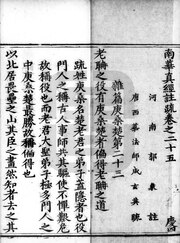 南華真經註疏卷之二十五
河南郭象註
唐西華法師成玄英疏
雜篇庚桑楚第二十三
老聃之役有庚桑楚者偏得老聃之道
疏姓庚桑名楚老君之弟子蓋隱者也役
門人之稱古人事師共其驅使不憚艱危
故稱役也而老君大聖弟子極多門人之
中庚桑楚最勝故稱偏得也
以北居畏壘之山其臣之畫然知者去之其